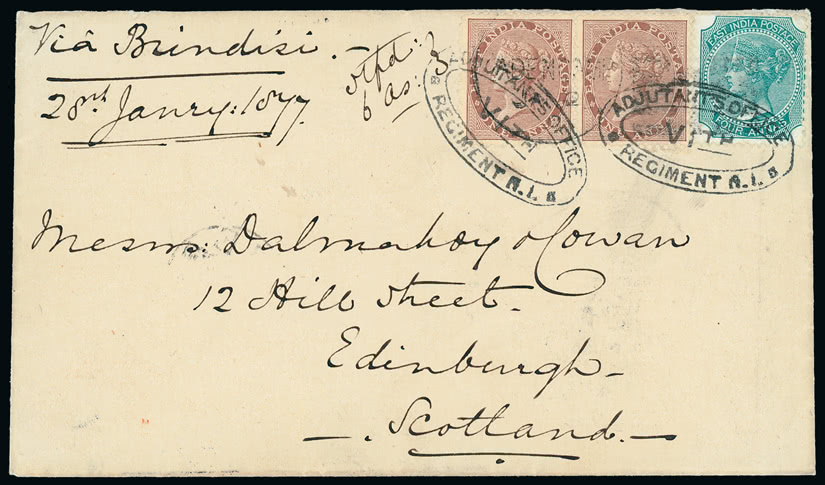 Via Brindisi
28th Janry: 1877
stpd: 3
6 as:
EAST INDIA POSTAGE
EAST INDIA POSTAGE
EAST INDIA POSTAGE
FOUR ANNAS
ADJUTANT'S OFFICE
VIITH
REGIMENT N.I.
ADJUTANT'S OFFICE
VIITH
REGIMENT N.I.
Messrs: Dalmahoy & Cowan
12 Hill Street.
Edinburgh
Scotland